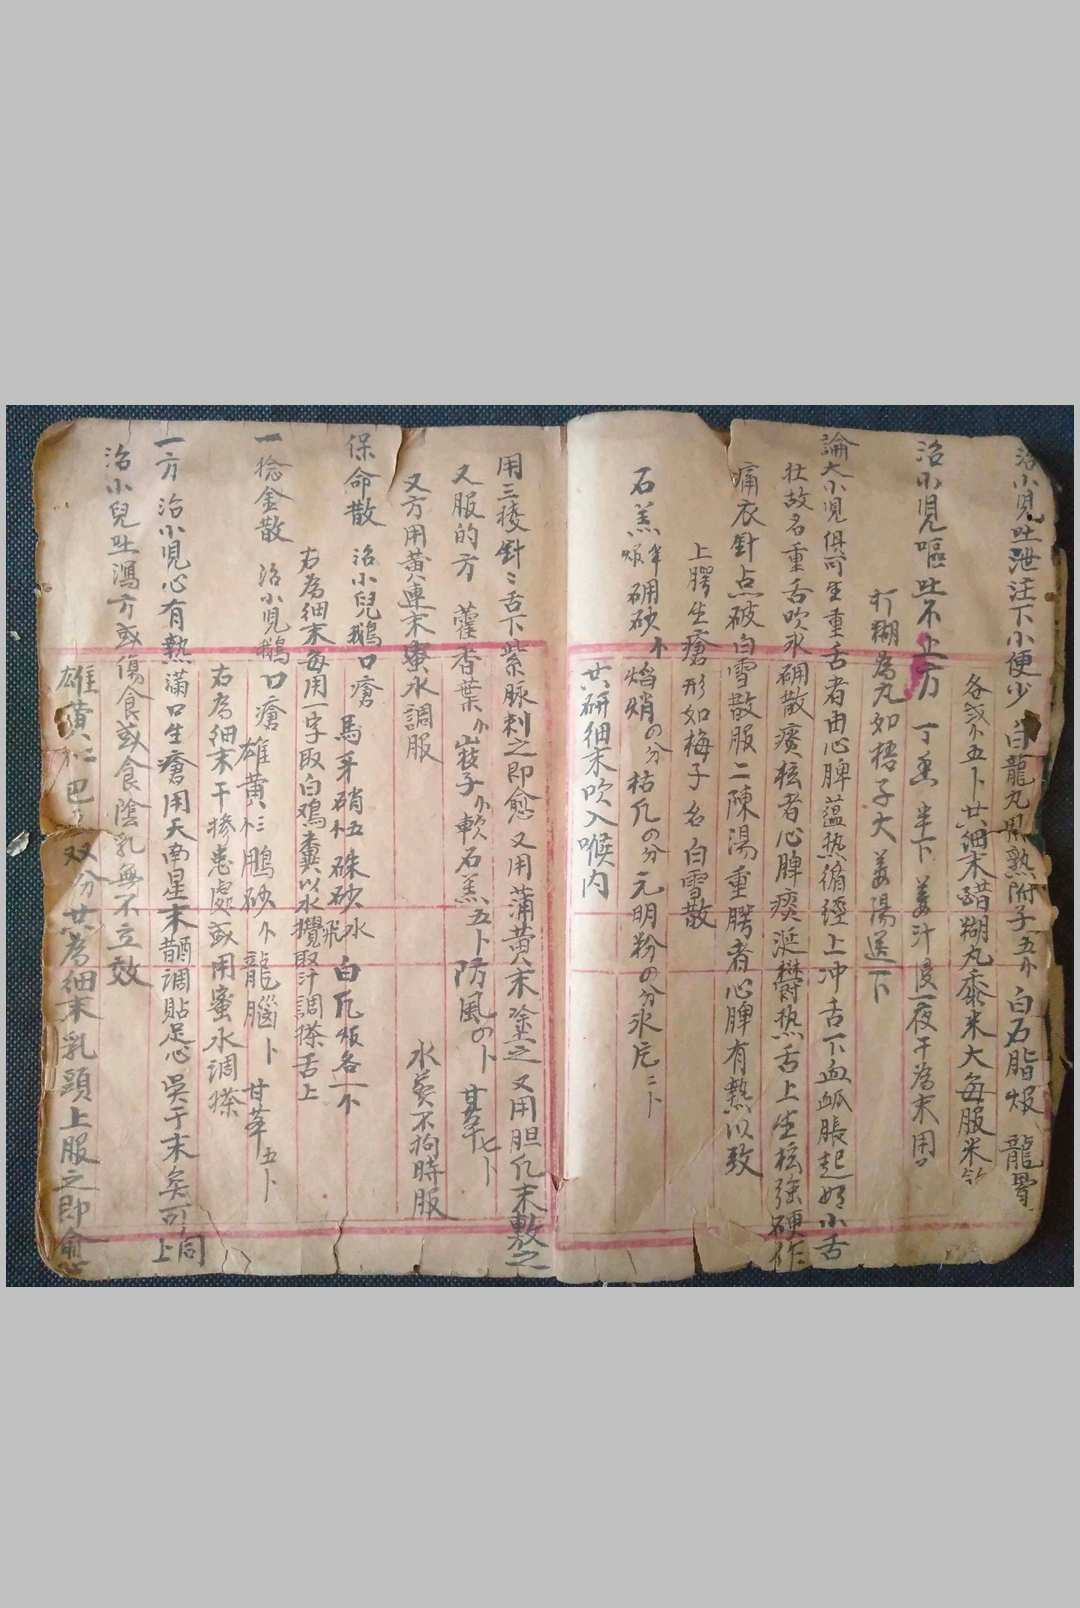 治小児吐泄注下小便少 白龍丸用熟附子五个 白石脂煅 龍骨
各 五卜共細末醋糊丸黍米大每服米飲
治小児嘔吐不止方 丁香 半下 姜汁侵一夜干為末用
打糊為丸如梧子大 姜湯送下
論大小児俱可至重舌者由心脾蘊热循經上冲舌下血脈脹起如小舌
壮故名重舌吹氷硼散 痰核者心脾痰涎欝热舌上生核强硬作
痛衣針点破白雪散服二陳湯重腭者心脾有熱以致
上腭生瘡形如梅子名白雪散
石羔煅 硼砂 焰硝の分枯凢の分元明粉の分氷片二卜
共研細末吹入喉内
用三棱針〻舌下紫脉刺之即愈 又用蒲黄末塗之 又用胆凢末敷之
又服的方 藿香葉 炭子 軟石羔五卜防風の卜 甘草七卜
水煎不拘時服
又方用黄連末蜜水調服
保命散 治小兒鵝口瘡 馬牙硝五 硃砂水飛 白凢煅各一个
右為細末每用一字取白鶏糞以水攪取汁調搽舌上
一捻金散 治小児鵝口瘡 雄黄三 鵬砂 龍腦卜 甘草五卜
右為細末干摻患處或用蜜水調搽
一方 治小児心有熱滿口生瘡用天南星末醋調貼足心 吴于末矣可同上
治小兒吐瀉方或傷食或食陰乳無不立效
雄黄 巴 双分共為細末乳頭上服之即愈